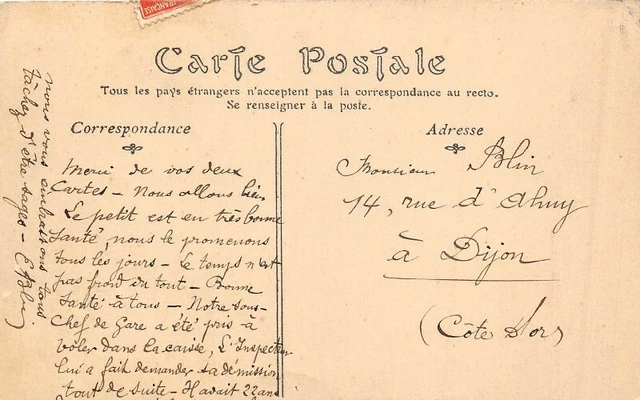 FRANÇAISE
Carte Postale
Tous les pays étrangers n'acceptent pas la correspondance au recto.
Se renseigner à la poste.
Correspondance
Merci de vos deux
Cartes — Nous allons bien
Le petit est en très bonne
Santé, nous le promenons
tous les jours — Le temps n'est
pas froid du tout — Bonne
Santé à tous — Notre sous-
chef de Gare a été pris à
voler dans la caisse, L'Inspecteur
lui a fait demander sa démission
tout de suite — Il avait 22 ans
nous vous embrassons tous
tâchez d'être sages — E Blin
Adresse
Monsieur Blin
14, rue d'Ahuy
à Dijon
(Côte d'Or)